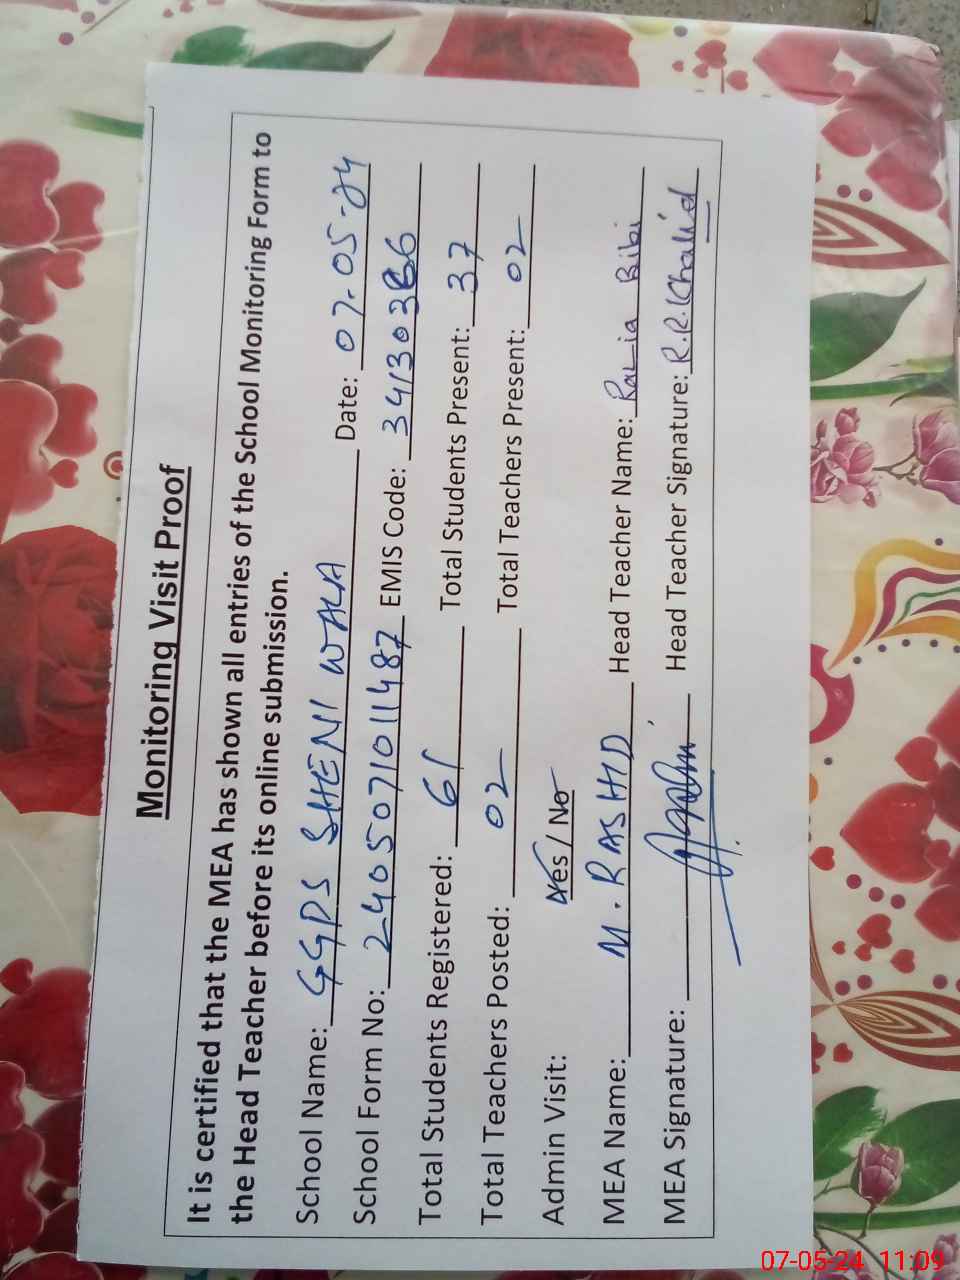 Monitoring Visit Proof
It is certified that the MEA has shown all entries of the School Monitoring Form to
the Head Teacher before its online submission.
School Name: GGPS SHENI WALA Date: 07-05-24
School Form No: 2405071011487 EMIS Code: 34130366
Total Students Registered: 61 Total Students Present: 37
Total Teachers Posted: 02 Total Teachers Present: 02
Admin Visit: Yes / No
MEA Name: M. RASHID Head Teacher Name: Razia Bibi
MEA Signature: Head Teacher Signature: R.R.Khalid
07-05-24 11:09